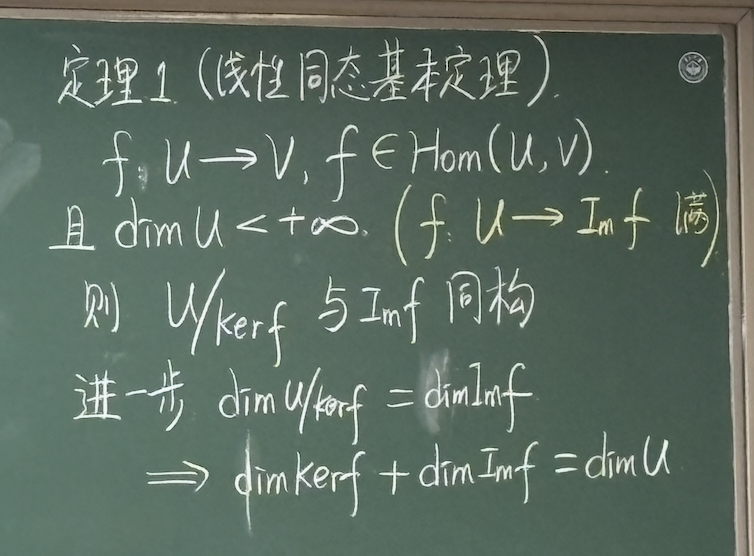 定理1 (线性同态基本定理).
f: U→V, f∈Hom(U,V).
且 dim U<+∞. (f: U→Im f 满)
则 U/ker f 与 Im f 同构
进一步 dim U/ker f = dim Im f
⇒ dim ker f + dim Im f = dim U